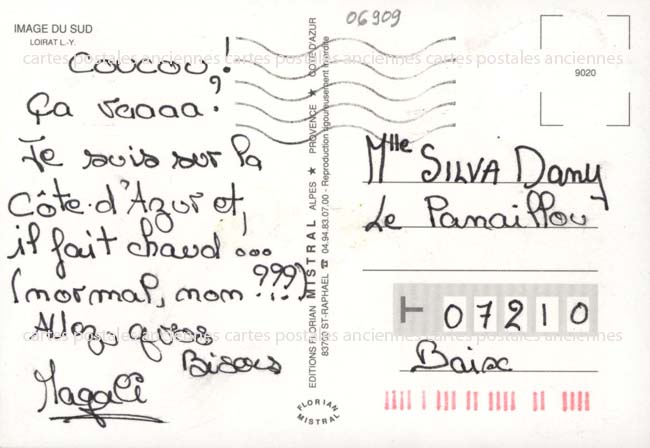 IMAGE DU SUD
LOIRAT L.-Y.
06909
9020
cartes postales anciennes cartes postales anciennes cartes postales anciennes
Coucou,!
Ça vaaaa?
Je suis sur la
Côte d'Azur et,
il fait chaud...
(normal, nom ???!)
Allez, gros
Bisous
Magali
EDITIONS FLORIAN MISTRAL ALPES ★ PROVENCE ★ COTE D'AZUR
83700 ST-RAPHAEL ☎ 04.94.83.07.00 - Reproduction rigoureusement interdite
FLORIAN
MISTRAL
Mlle SILVA Dany
Le Panaillou
07210
cartes postales anciennes cartes postales anciennes cartes postales anciennes
Baix